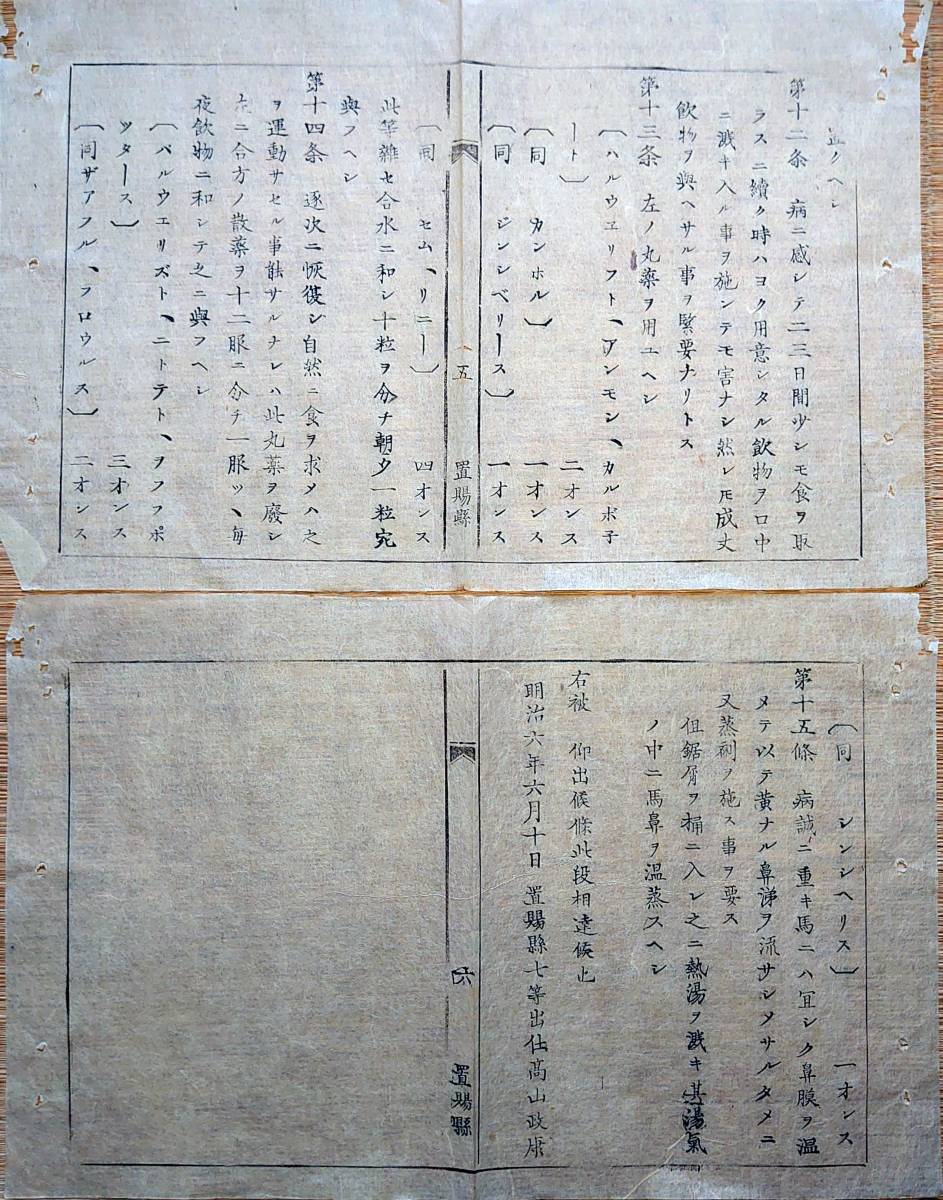 並クヘシ
第十二条　病ニ感シテ二三日間少シモ食ヲ取
ラスニ續ク時ハヨク用意シタル飲物ヲロ中
ニ濺キ入ル事ヲ施ンテモ害ナシ然レ𪜈成丈
飲物ヲ與ヘサル事ヲ緊要ナリトス
第十三条　左ノ丸薬ヲ用ユヘシ
〔ハルウヱリフト、アンモン、カルボ子
ート〕　二オンス
〔同　カンホル〕　一オンス
〔同　ジンシベリース〕　一オンス
五　置賜縣
〔同　セム、リニー〕　四オンス
此等雑セ合水ニ和シ十粒ヲ分チ朝夕一粒宛
與フヘシ
第十四条　逐次ニ恢復シ自然ニ食ヲ求メハ之
ヲ運動サセル事能サルナレハ此丸薬ヲ廢シ
左ニ合方ノ散薬ヲ十二服ニ分チ一服ツヽ毎
夜飲物ニ和シテ之ニ與フヘシ
〔パルウエリズト、ニトテト、ヲフフポ
ツタース〕　三オンス
〔同ザアフル、ラロウルス〕　二オンス
〔同　シンシヘリス〕　一オンス
第十五條　病誠ニ重キ馬ニハ冝シク鼻膜ヲ温
メテ以テ黄ナル鼻涕ヲ流サシメサルタメニ
又蒸剤ヲ施ス事ヲ要ス
但鋸屑ヲ桶ニ入レ之ニ熱湯ヲ濺キ其湯氣
ノ中ニ馬鼻ヲ温蒸スヘシ
右被　仰出候條此段相達候也
明治六年六月十日　置賜縣七等出仕髙山政康
六　置賜縣